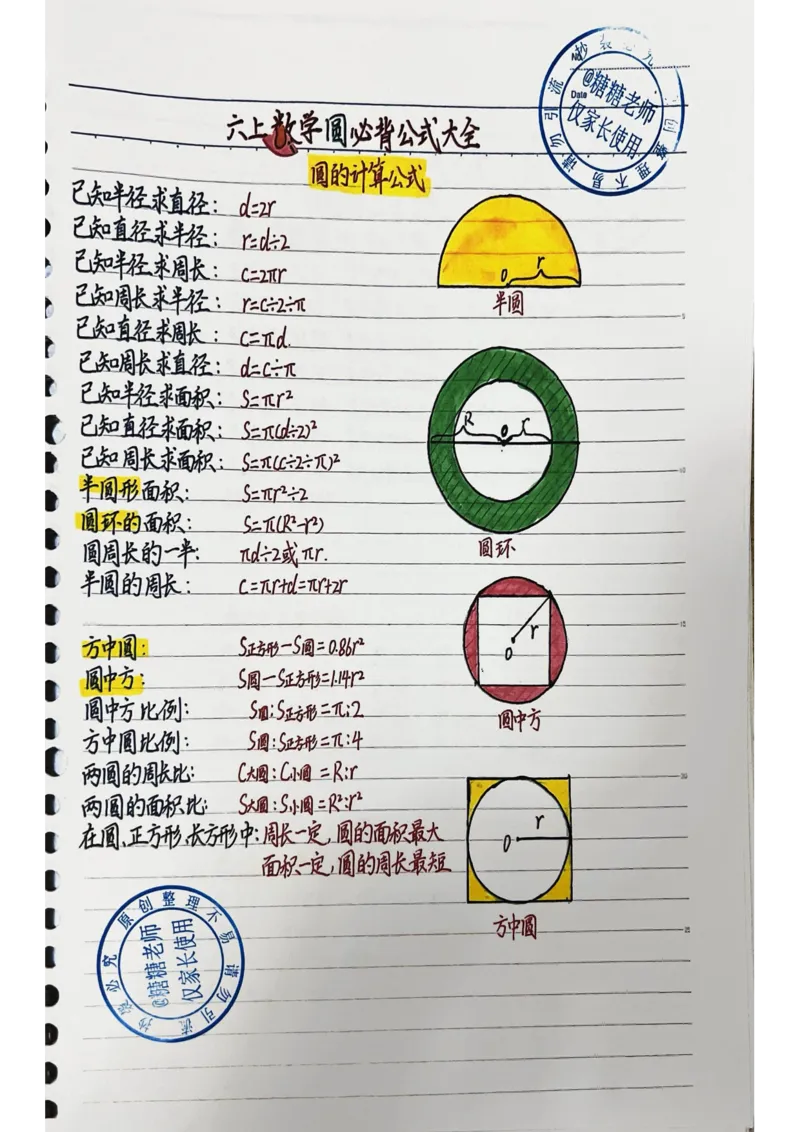 六上数学圆必背公式大全
圆的计算公式
已知半径求直径： d=2r
已知直径求半径： r=d÷2
已知半径求周长： c=2πr
已知周长求半径： r=c÷2÷π
已知直径求周长： c=πd.
已知周长求直径： d=c÷π
已知半径求面积： S=πr²
已知直径求面积： S=π(d÷2)²
已知周长求面积： S=π(c÷2÷π)²
半圆形面积： S=πr²÷2
圆环的面积： S=π(R²-r²)
圆周长的一半： πd÷2或πr.
半圆的周长： C=πr+d=πr+2r
方中圆： S正方形-S圆=0.86r²
圆中方： S圆-S正方形=1.14r²
圆中方比例： S圆:S正方形=π:2
方中圆比例： S圆:S正方形=π:4
两圆的周长比： C大圆:C小圆=R:r
两圆的面积比： S大圆:S小圆=R²:r²
在圆、正方形、长方形中：周长一定，圆的面积最大
面积一定，圆的周长最短
O r
半圆
R O r
圆环
r
O
圆中方
r
O
方中圆
Date
@糖糖老师
仅家长使用
原创整理不易请勿引流抄袭必究
@糖糖老师
仅家长使用
原创整理不易请勿引流抄袭必究